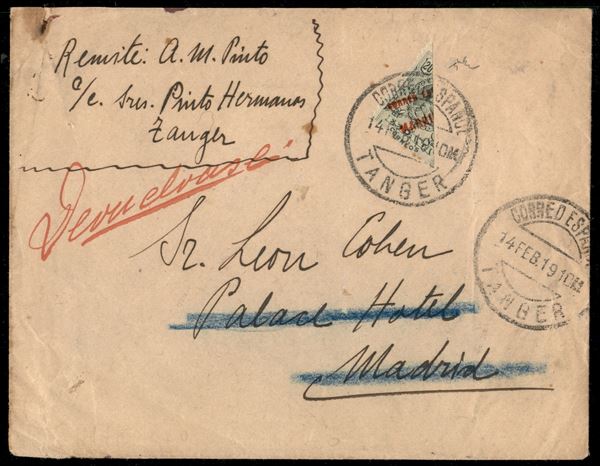 Remite: A. M. Pinto
c/o. Sres. Pinto Hermanos
Tanger
Devuelvase
CORREO ESPAÑOL
14 FEB. 19 10M
TANGER
Sr. Leon Cohen
Palace Hotel
Madrid
CORREO ESPAÑ
14 FEB. 19 10M
TANGER